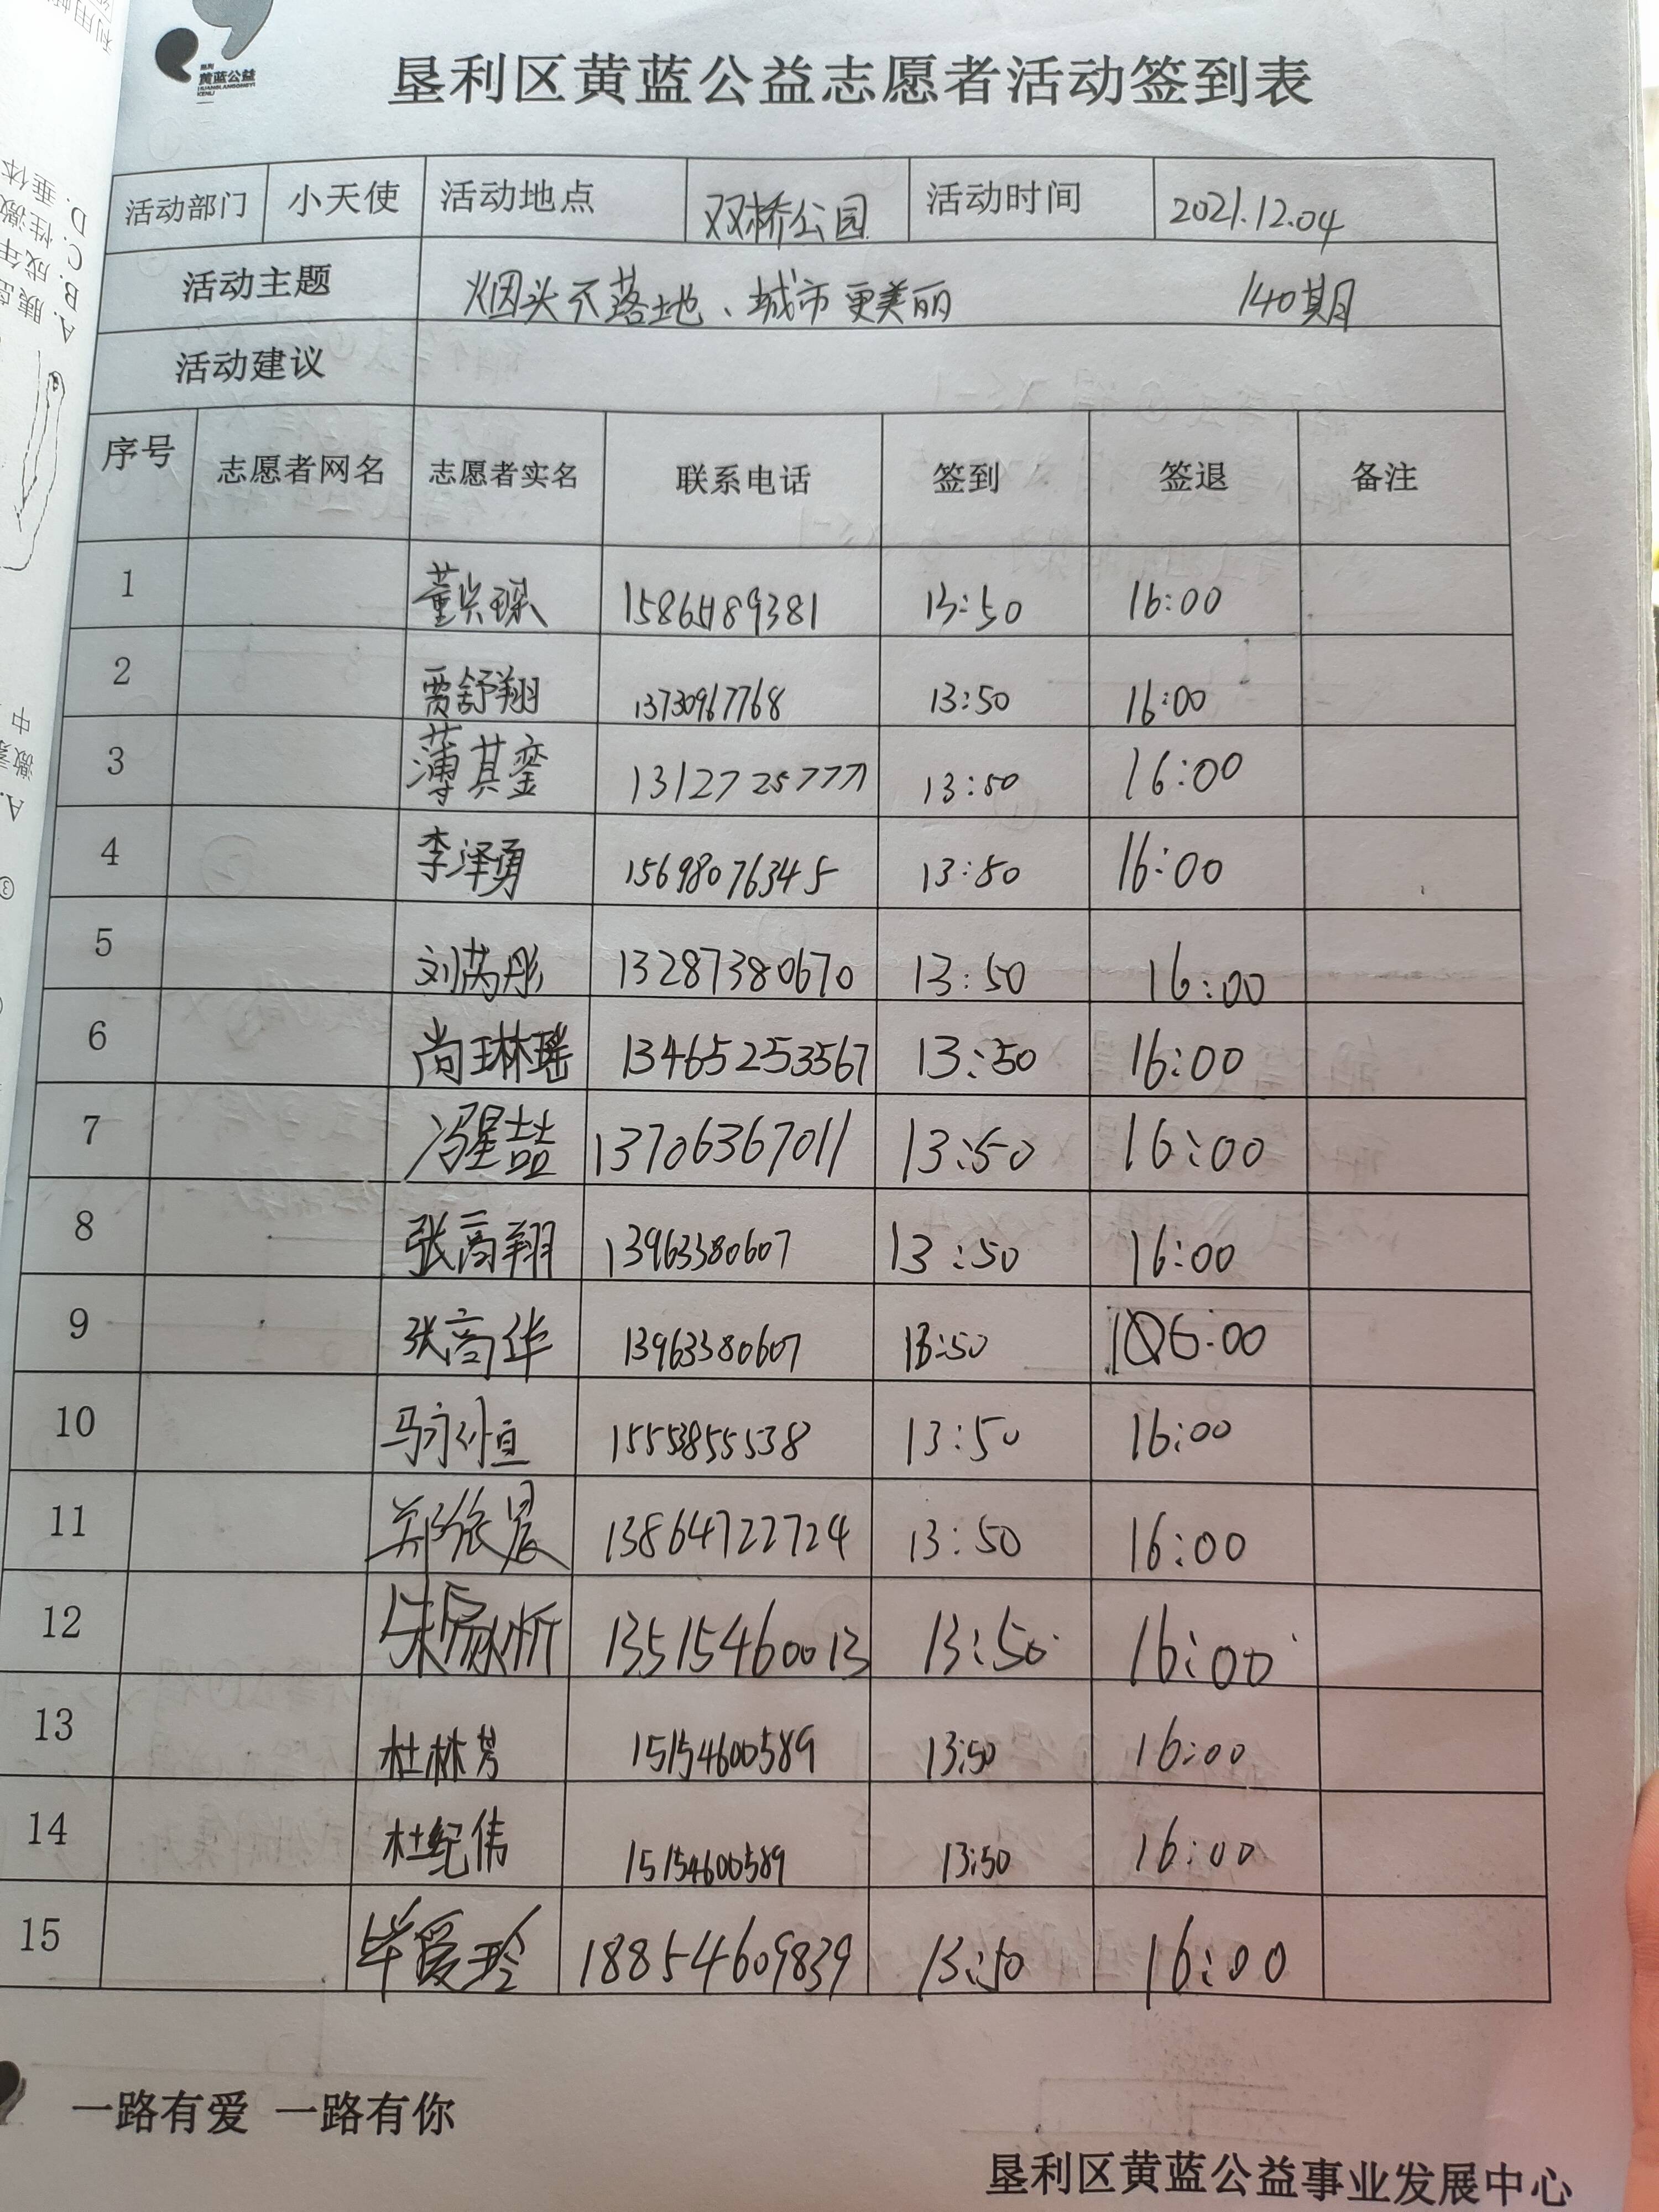 垦利
黄蓝公益
HUANGLANGONGYI
KENLI
垦利区黄蓝公益志愿者活动签到表
活动部门 小天使 活动地点 双桥公园 活动时间 2021.12.04
活动主题 烟头不落地、城市更美丽 140期
活动建议
序号 志愿者网名 志愿者实名 联系电话 签到 签退 备注
1 董兴琛 15865189381 13:50 16:00
2 贾舒翔 13730967768 13:50 16:00
3 薄其銮 13127257771 13:50 16:00
4 李泽勇 15698076345 13:50 16:00
5 刘芮彤 13287380670 13:50 16:00
6 尚琳瑶 13465253567 13:50 16:00
7 冯星喆 13706367011 13:50 16:00
8 张高翔 13963380607 13:50 16:00
9 张高华 13963380607 13:50 16:00
10 马永恒 15553855538 13:50 16:00
11 13864722724 13:50 16:00
12 13515460013 13:50 16:00
13 杜林芳 15154600589 13:50 16:00
14 杜纪伟 15154600589 13:50 16:00
15 毕爱玲 18854609839 13:50 16:00
一路有爱 一路有你
垦利区黄蓝公益事业发展中心